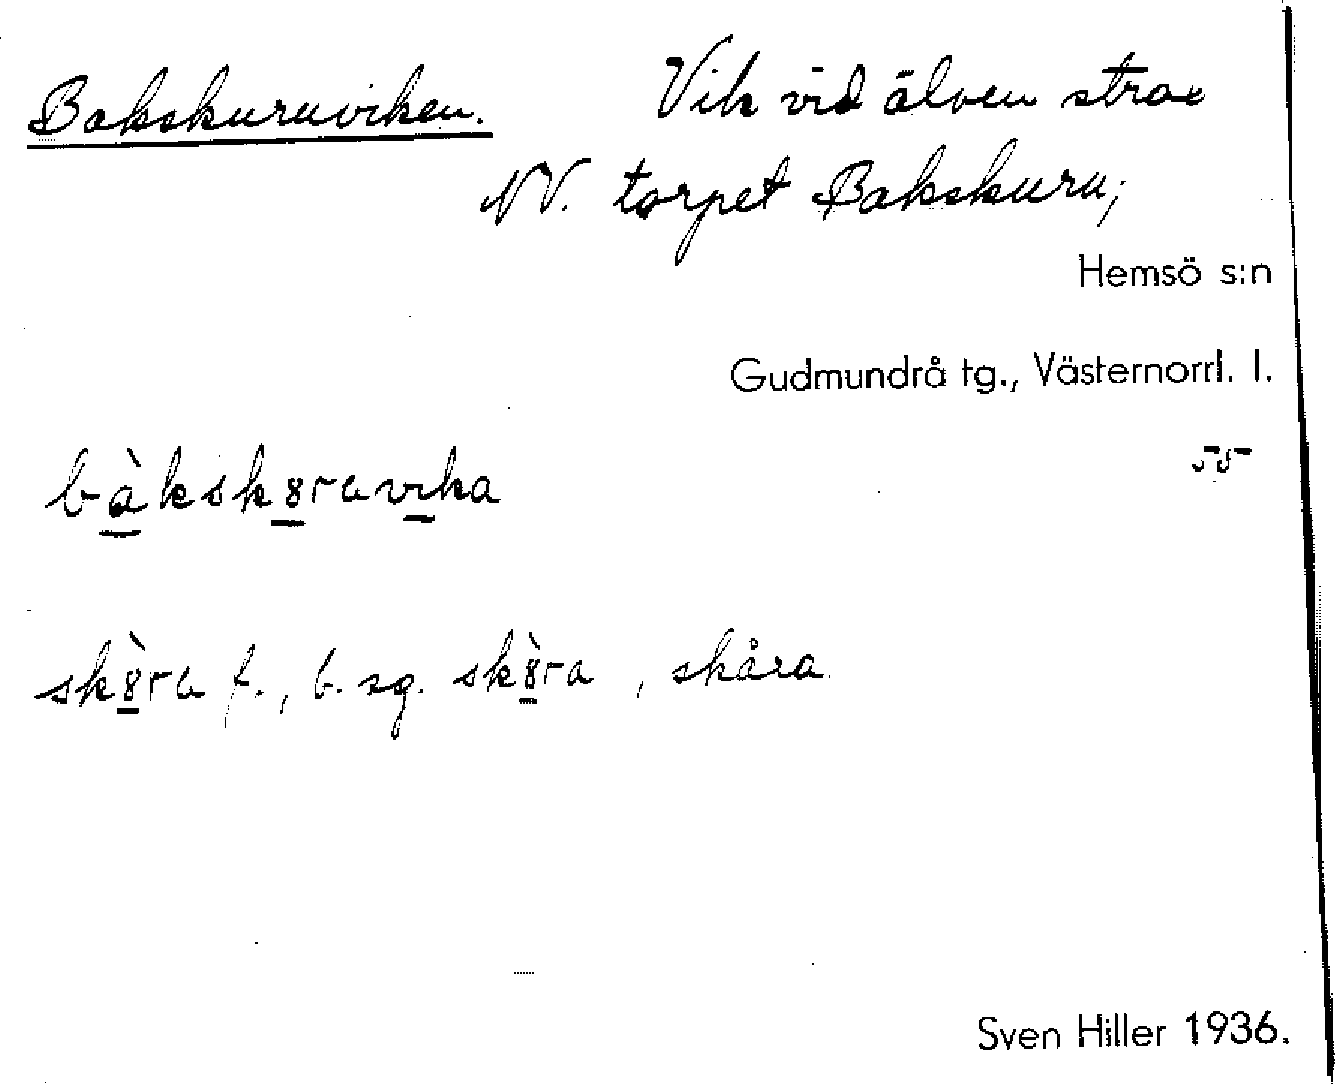 Bakskuruviken. Vik vid älven strax
NV. torpet Bakskuru;
Hemsö s:n
Gudmundrå tg., Västernorrl. l.
55
bàksk8ruvika
sk8̀ru f., b. sg. sk8̀ra, skåra
Sven Hiller 1936.